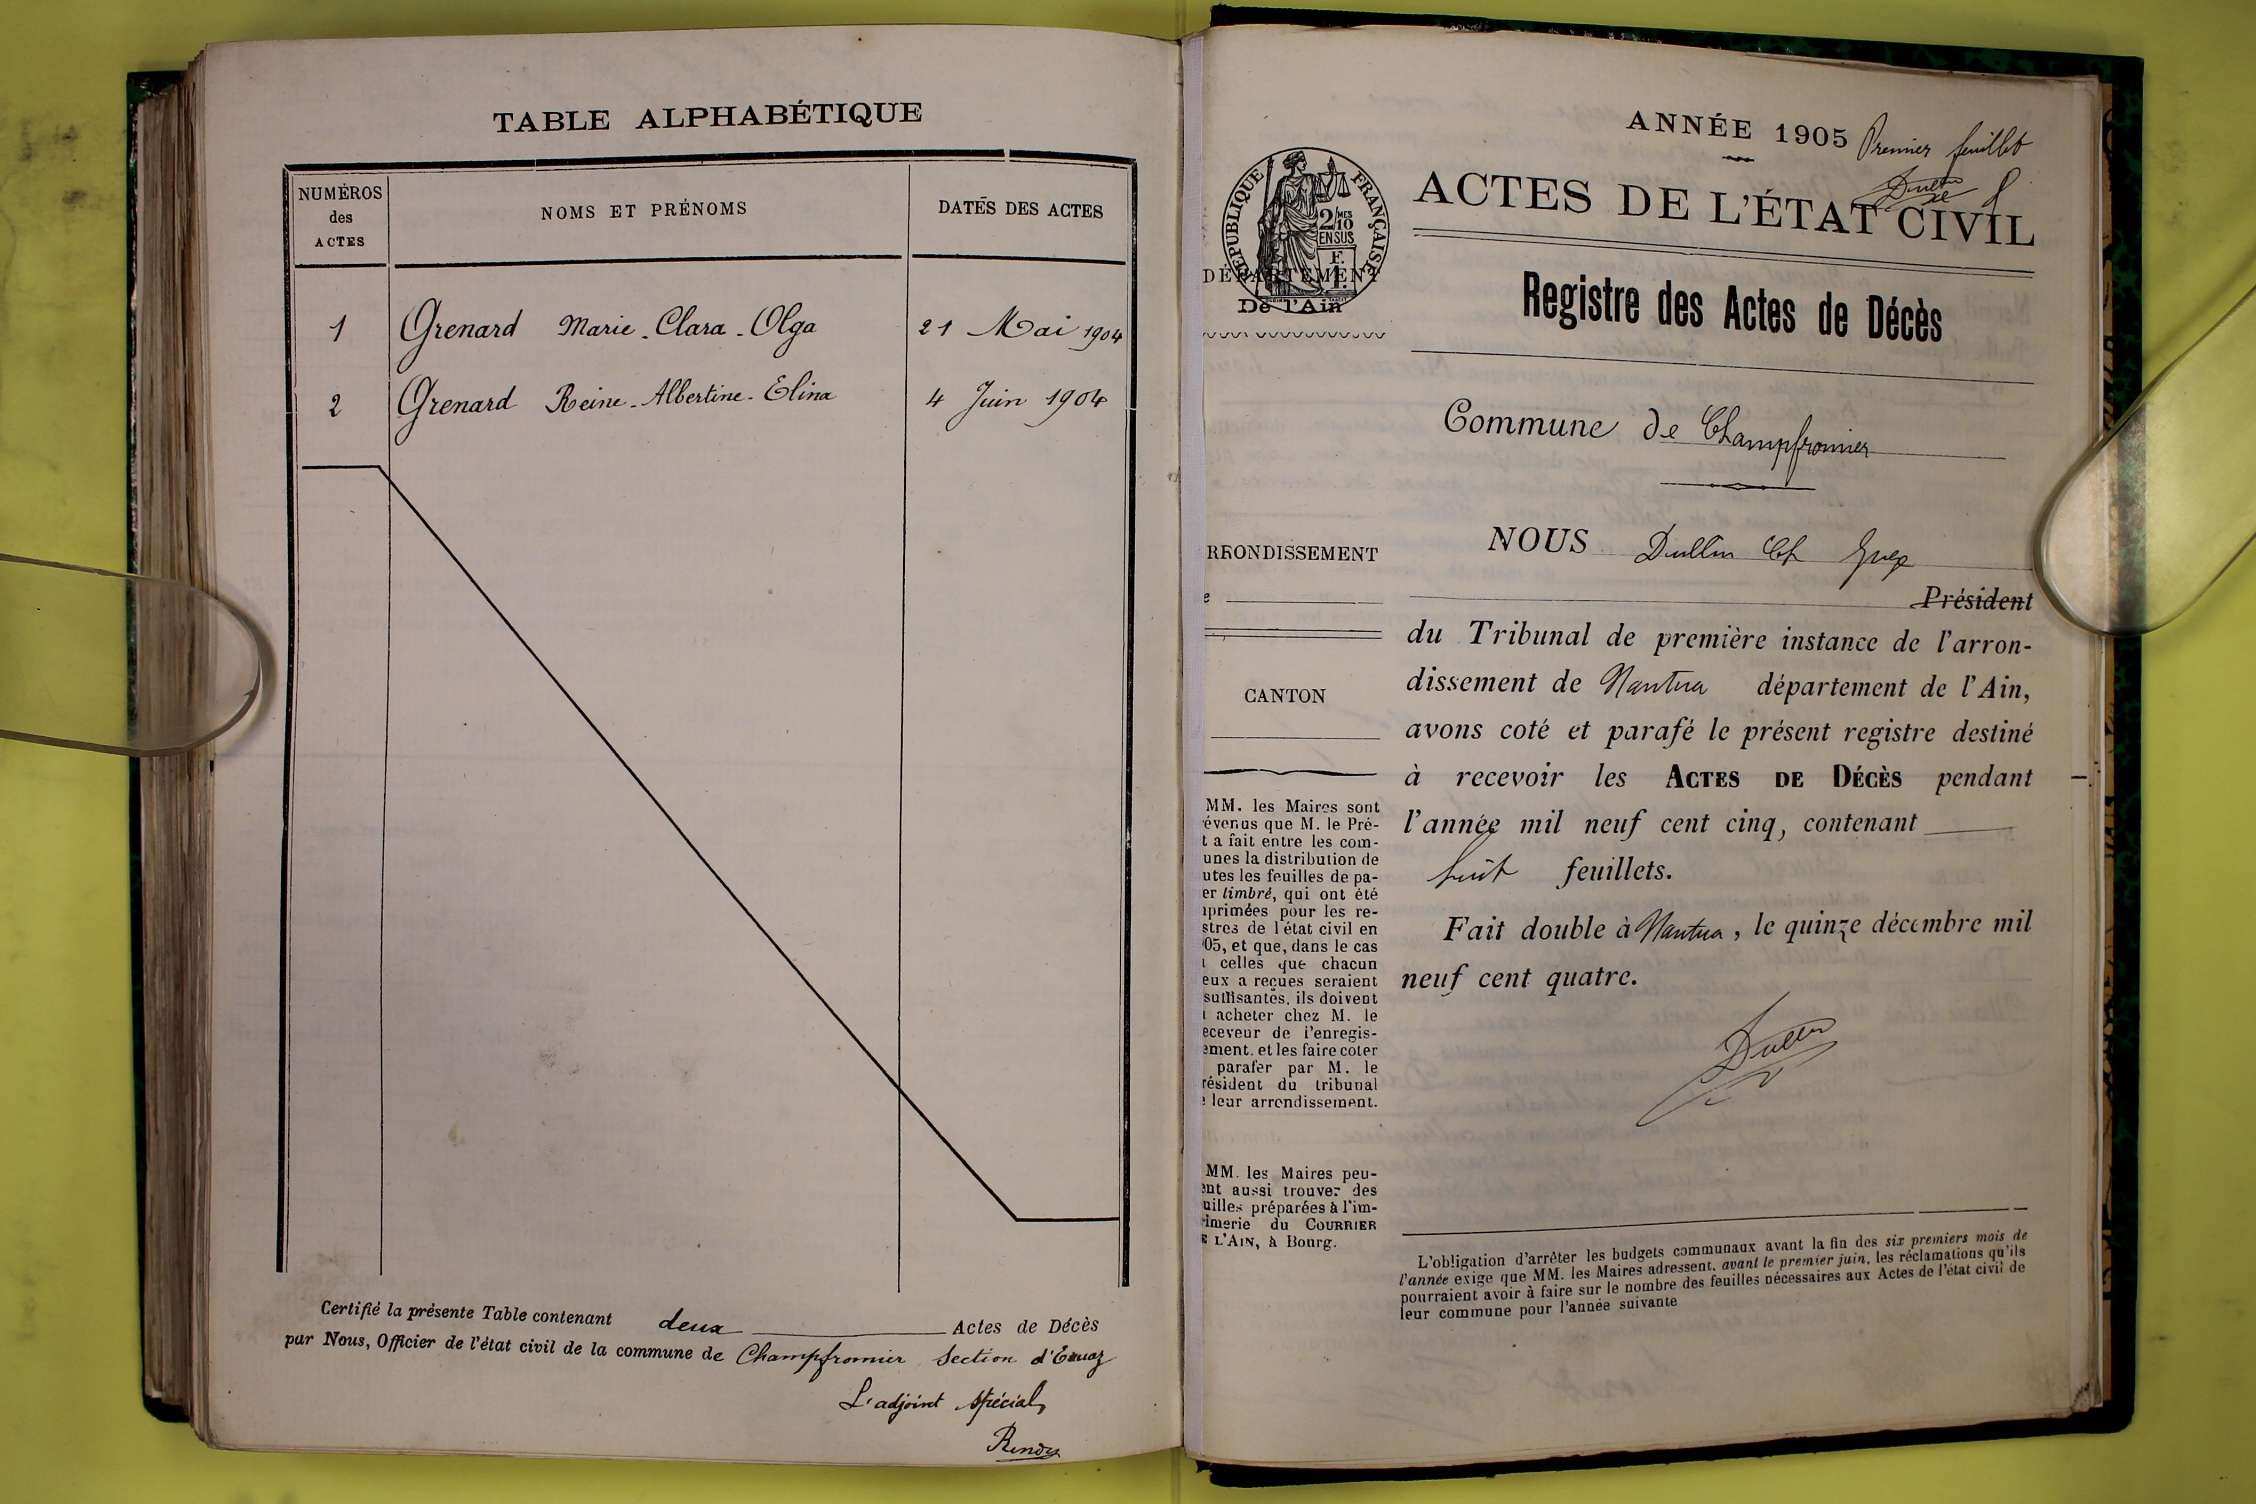 TABLE ALPHABÉTIQUE
NUMÉROS
des
ACTES
NOMS ET PRÉNOMS
DATES DES ACTES
1 Grenard Marie-Clara-Olga 21 Mai 1904
2 Grenard Reine-Albertine-Elina 4 Juin 1904
Certifié la présente Table contenant deux Actes de Décès
par Nous, Officier de l'état civil de la commune de Champfromier Section d'Évuaz
L'adjoint spécial,
ANNÉE 1905
Premier feuillet
Dullin
ACTES DE L'ÉTAT CIVIL
RÉPUBLIQUE FRANÇAISE
2/10MES
EN SUS
F.
1.
DÉPARTEMENT
De l'Ain
Registre des Actes de Décès
Commune de Champfromier
RRONDISSEMENT
e
CANTON
MM. les Maires sont
évenus que M. le Pré-
t a fait entre les com-
unes la distribution de
utes les feuilles de pa-
er timbré, qui ont été
primées pour les re-
stres de l'état civil en
05, et que, dans le cas
celles que chacun
eux a reçues seraient
suffisantes, ils doivent
acheter chez M. le
eceveur de l'enregis-
ement, et les faire coter
parafer par M. le
résident du tribunal
e leur arrondissement.
MM. les Maires peu-
ent aussi trouver des
uilles préparées à l'im-
imerie du COURRIER
E L'AIN, à Bourg.
NOUS Dullin
Président
du Tribunal de première instance de l'arron-
dissement de Nantua département de l'Ain,
avons coté et parafé le présent registre destiné
à recevoir les ACTES DE DÉCÈS pendant
l'année mil neuf cent cinq, contenant
huit feuillets.
Fait double à Nantua, le quinze décembre mil
neuf cent quatre.
Dullin
L'obligation d'arrêter les budgets communaux avant la fin des six premiers mois de
l'année exige que MM. les Maires adressent, avant le premier juin, les réclamations qu'ils
pourraient avoir à faire sur le nombre des feuilles nécessaires aux Actes de l'état civil de
leur commune pour l'année suivante